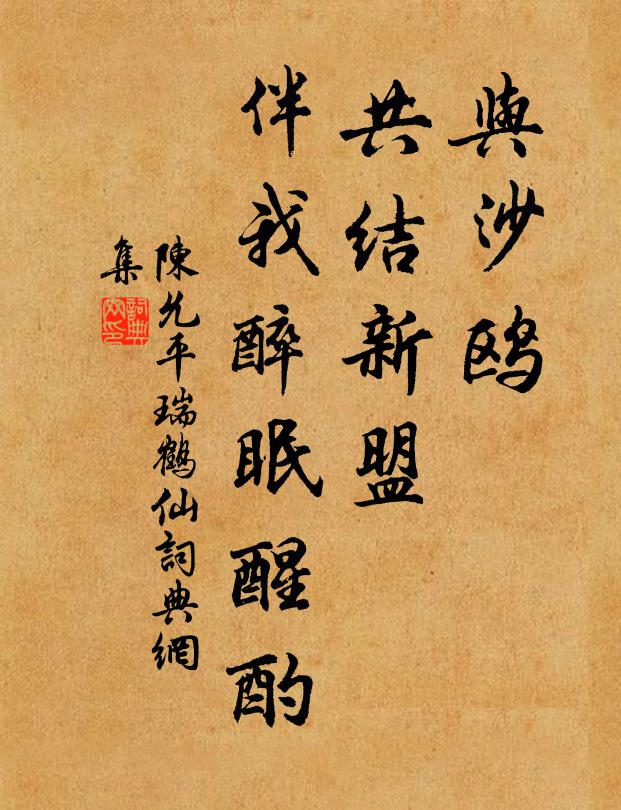 與沙鸥
共结新盟
伴我醉眠醒酌
陳允平瑞鶴仙詞典網
集
詞典網印